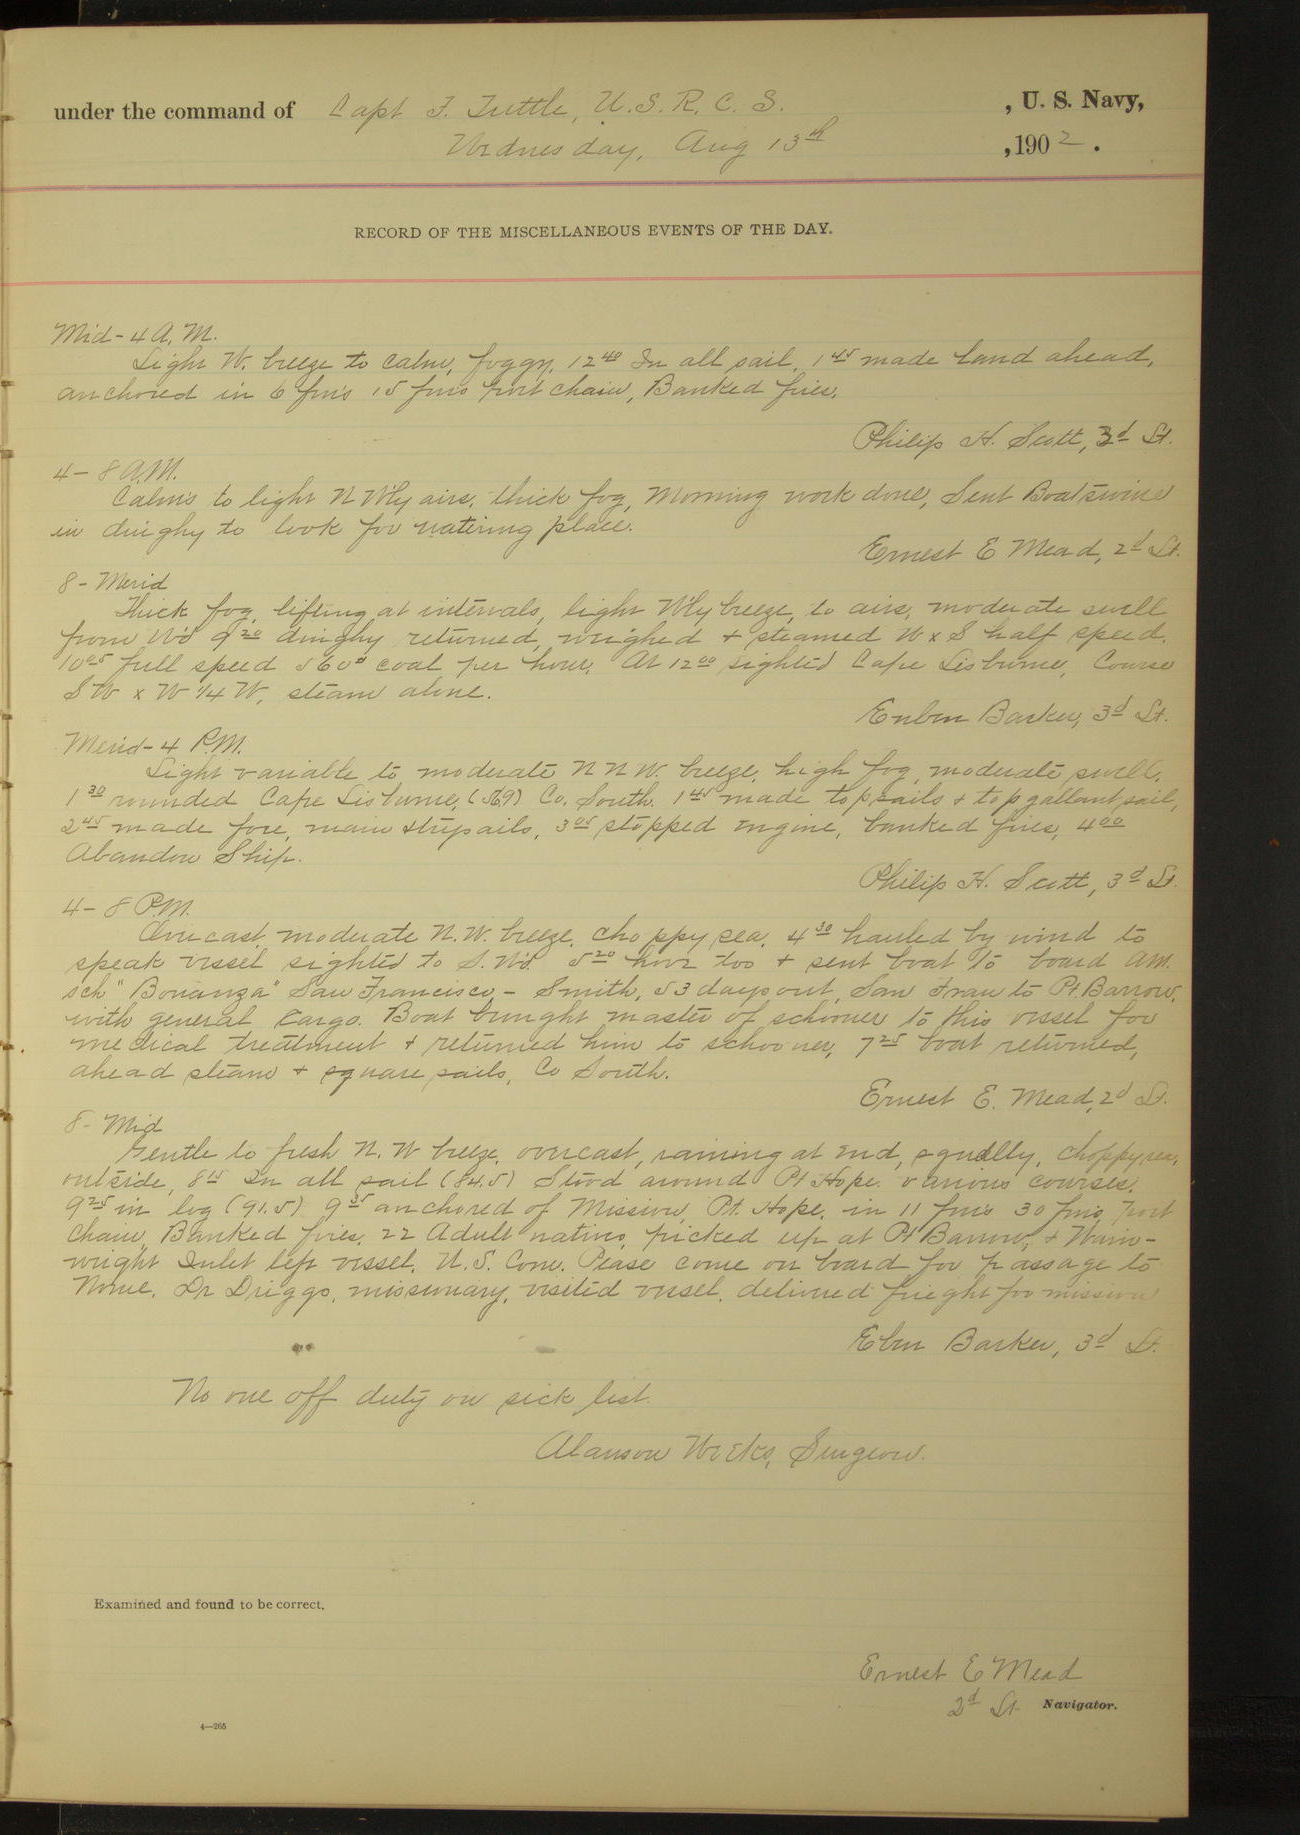 under the command of Capt F. Tuttle, U.S.R.C.S. , U. S. Navy,
Wednesday, Aug 13th , 1902 .
RECORD OF THE MISCELLANEOUS EVENTS OF THE DAY.
Mid - 4 A.M.
Light W. breeze to calm, foggy. 12 40 In all sail. 1 45 made land ahead,
anchored in 6 fms 15 fms port chain, Banked fires.
Philip H. Scott, 3d Lt.
4 - 8 A.M.
Calms to light N W'ly airs, thick fog, Morning work done, Sent Boatswine
in dinghy to look for watering place.
Ernest E Mead, 2d Lt.
8 - Merid
Thick fog, lifting at intervals, light W'ly breeze, to airs, moderate swell
from W'd 9 20 dinghy returned, weighed + steamed W x S half speed.
10 05 full speed 560 # coal per hour. At 12 00 sighted Cape Lisburne, Course
SW x W 1/4 W, steam alone.
Eben Barker, 3d Lt.
Merid - 4 P.M.
Light variable to moderate N N W. breeze, high fog, moderate swell.
1 30 rounded Cape Lisburne, (56.9) Co. South. 1 45 made topsails + topgallantsail,
2 45 made fore, main + trysails, 3 05 stopped engine, banked fires, 4 00
Abandon Ship.
Philip H. Scott, 3d Lt.
4 - 8 P.M.
Overcast, moderate N.W. breeze, choppy sea. 4 30 hauled by wind to
speak vessel sighted to S. W'd. 5 20 hove too + sent boat to board Am.
sch "Bonanza" San Francisco, - Smith, 53 days out, San Fran to Pt. Barrow,
with general cargo. Boat brought master of schooner to this vessel for
medical treatment + returned him to schooner, 7 25 boat returned,
ahead steam + square sails, Co South.
Ernest E. Mead, 2d Lt.
8 - Mid
Gentle to fresh N. W breeze, overcast, raining at end, squally, choppy sea,
outside, 8 15 In all sail (84.5) Stood around Pt Hope. various courses.
9 25 in log (91.5) 9 35 anchored of Mission, Pt. Hope, in 11 fms 30 fms port
chain, Banked fires, 22 Adult natives, picked up at Pt Barrow, + Wain-
wright Inlet left vessel. U.S. Com. Pease come on board for passage to
Nome. Dr Driggs, missionary, visited vessel. delivered freight for mission
Eben Barker, 3d Lt.
No one off duty on sick list.
Alanson Weeks, Surgeon.
Examined and found to be correct.
Ernest E Mead
2d Lt Navigator.
4—265